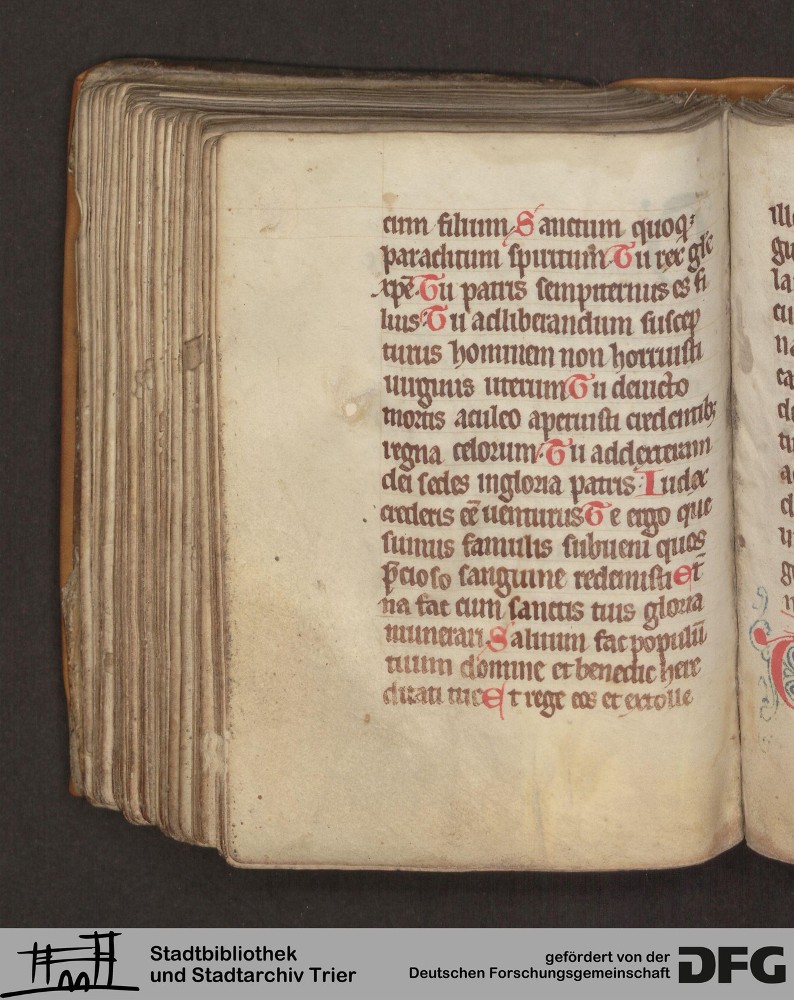 cum filium Sanctum quoq₃
paraclitum spiritum̄ Tu rex glē
xpē Tu patris sempiternus es fi
lius Tu adliberandum suscep
turus hominem non horruisti
uirginis uterum Tu deuicto
mortis aculeo aperuisti credentib₃
regna celorum Tu addexteram
dei sedes ingloria patris Iudex
crederis eē uenturus Te ergo que
sumus famulis subueni quos
p̄cioso sanguine redemisti Et
na fac cum sanctis tuis gloria
munerari Saluum fac populū
tuum domine et benedic here
ditati tue Et rege eos et extolle
ille
gu
la
cu
na
ca
de
tu
a
d
Stadtbibliothek
und Stadtarchiv Trier
gefördert von der
Deutschen Forschungsgemeinschaft
DFG